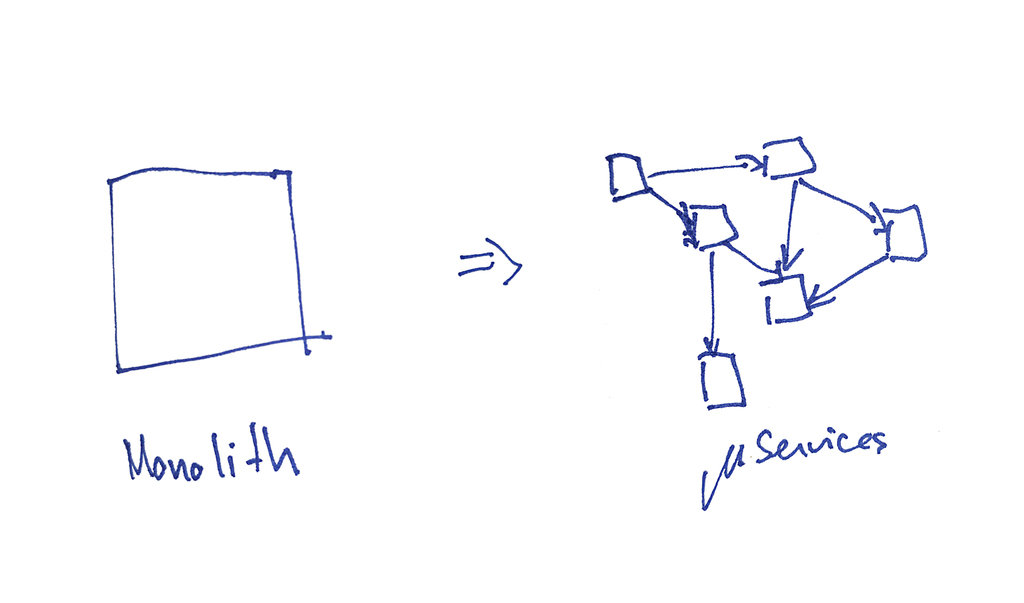 Monolith
μServices